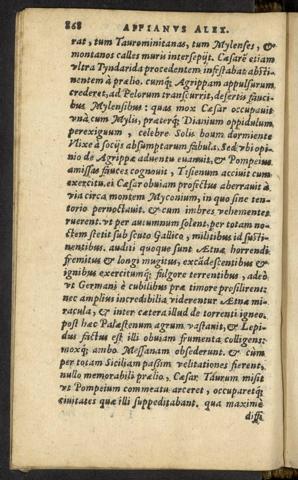 868 APPIANVS ALEX.
rat, tum Taurominitanas, tum Mylenses, &
montanos calles muris intersepijt. Cæsarē etiam
vltra Tyndarida procedentem infestabat absti-
nentem à prælio. cumq; Agrippam appulsurum
crederet, ad Pelorum transcurrit, desertis fauci-
bus Mylensibus: quas mox Cæsar occupauit
vnà cum Mylis, præterq; Dianium oppidulum
perexiguum, celebre Solis boum dormiente
Vlixe à socijs absumptarum fabula. Sed vbi opi-
nio de Agrippæ aduentu euanuit, & Pompeius
amissas fauces cognouit, Tisenum acciuit cum
exercitu. ei Cæsar obuiam profectus aberrauit à
via circa montem Myconium, in quo sine ten-
torio pernoctauit. & cum imbres vehementes
ruerent, vt per autumnum solent, per totam no-
ctem stetit sub scuto Gallico, militibus id susti-
nentibus. auditi quoque sunt Ætnæ horrendi
fremitus & longi mugitus, excādescentibus &
ignibus exercitumq; fulgore terrentibus, adeò
vt Germani è cubilibus præ timore prosilirent,
nec amplius incredibilia viderentur Ætnæ mi-
racula, & inter cætera illud de torrenti igneo.
post hæc Palæstenum agrum vastauit, & Lepi-
dus factus est illi obuiam frumenta colligens:
moxq; ambo Messanam obsederunt. & cùm
per totam Siciliam passim velitationes fierent,
nullo memorabili prælio, Cæsar Taurum misit
vt Pompeium commeatu arceret, occuparetq;
ciuitates quæ illi suppeditabant. qua maximè
diffi-